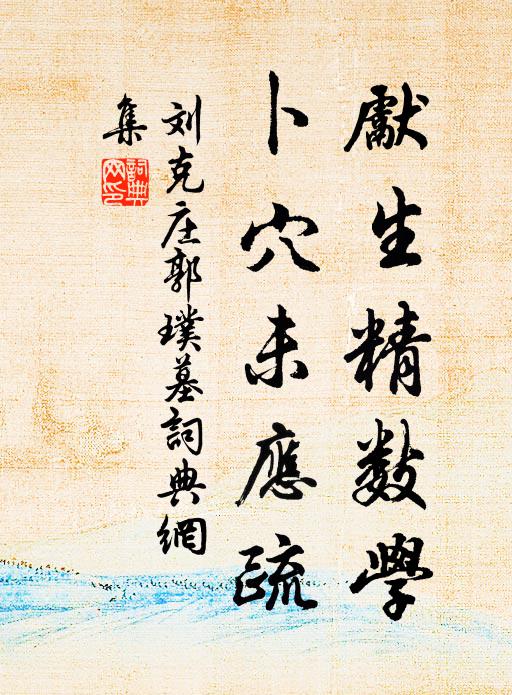 獻生精數學
卜穴未應疏
刘克庄郭璞墓詞典網
集
詞典
网印